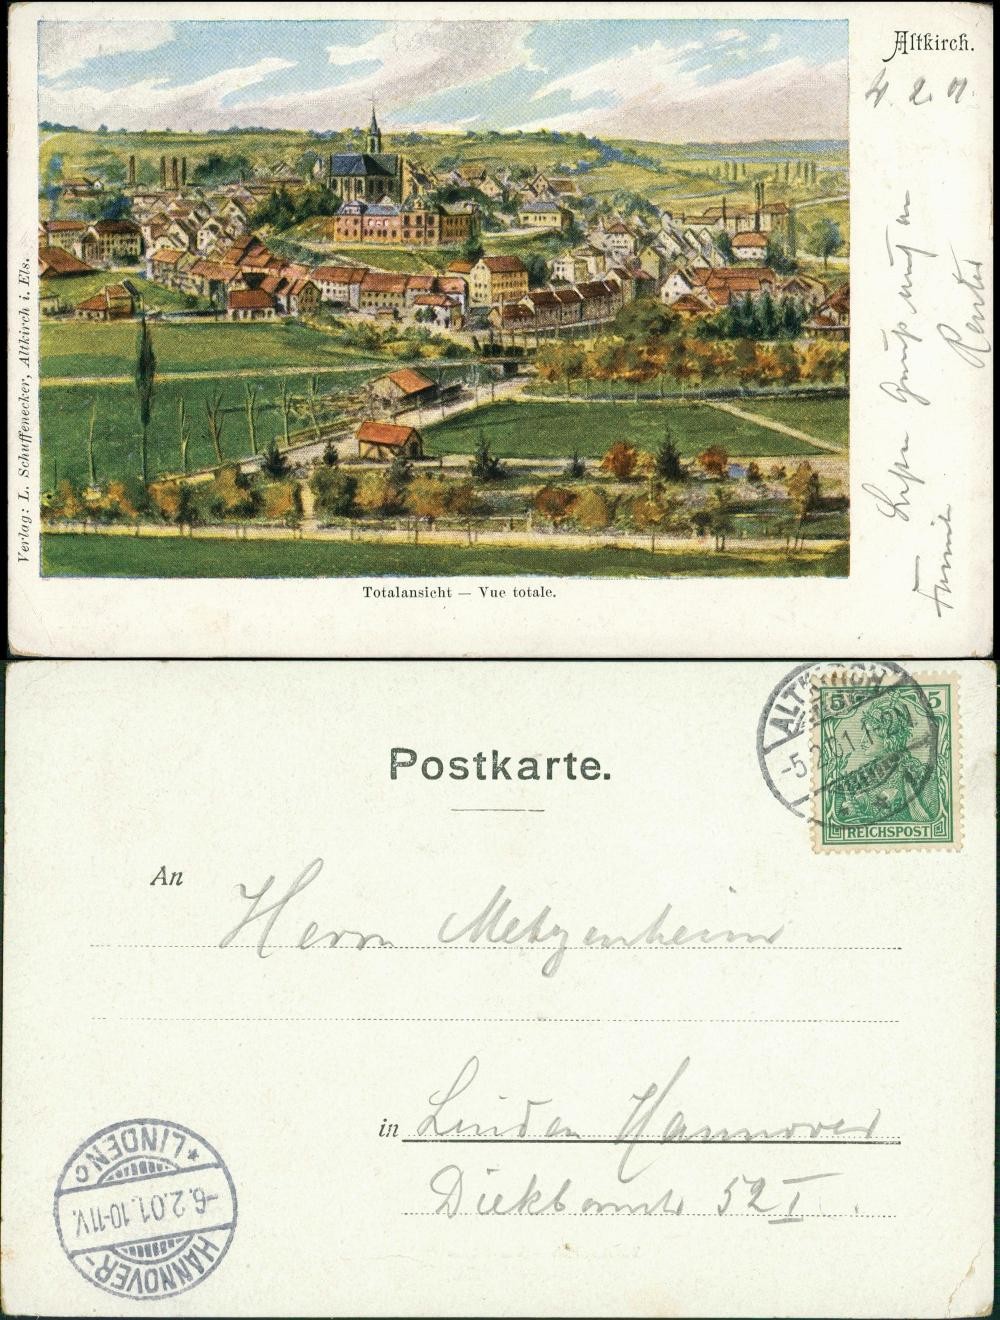 Altkirch.
4. 2. 01.
Gruß
Verlag: L. Schuffenecker, Altkirch i. Els.
Totalansicht — Vue totale.
Postkarte.
ALTKIRCH
-5.2.01.1-2N
5 5
REICHSPOST
An
Herrn Metzenheim
in Linden Hannover
52 I.
HANNOVER-
-6.2.01.10-11V.
* LINDEN c